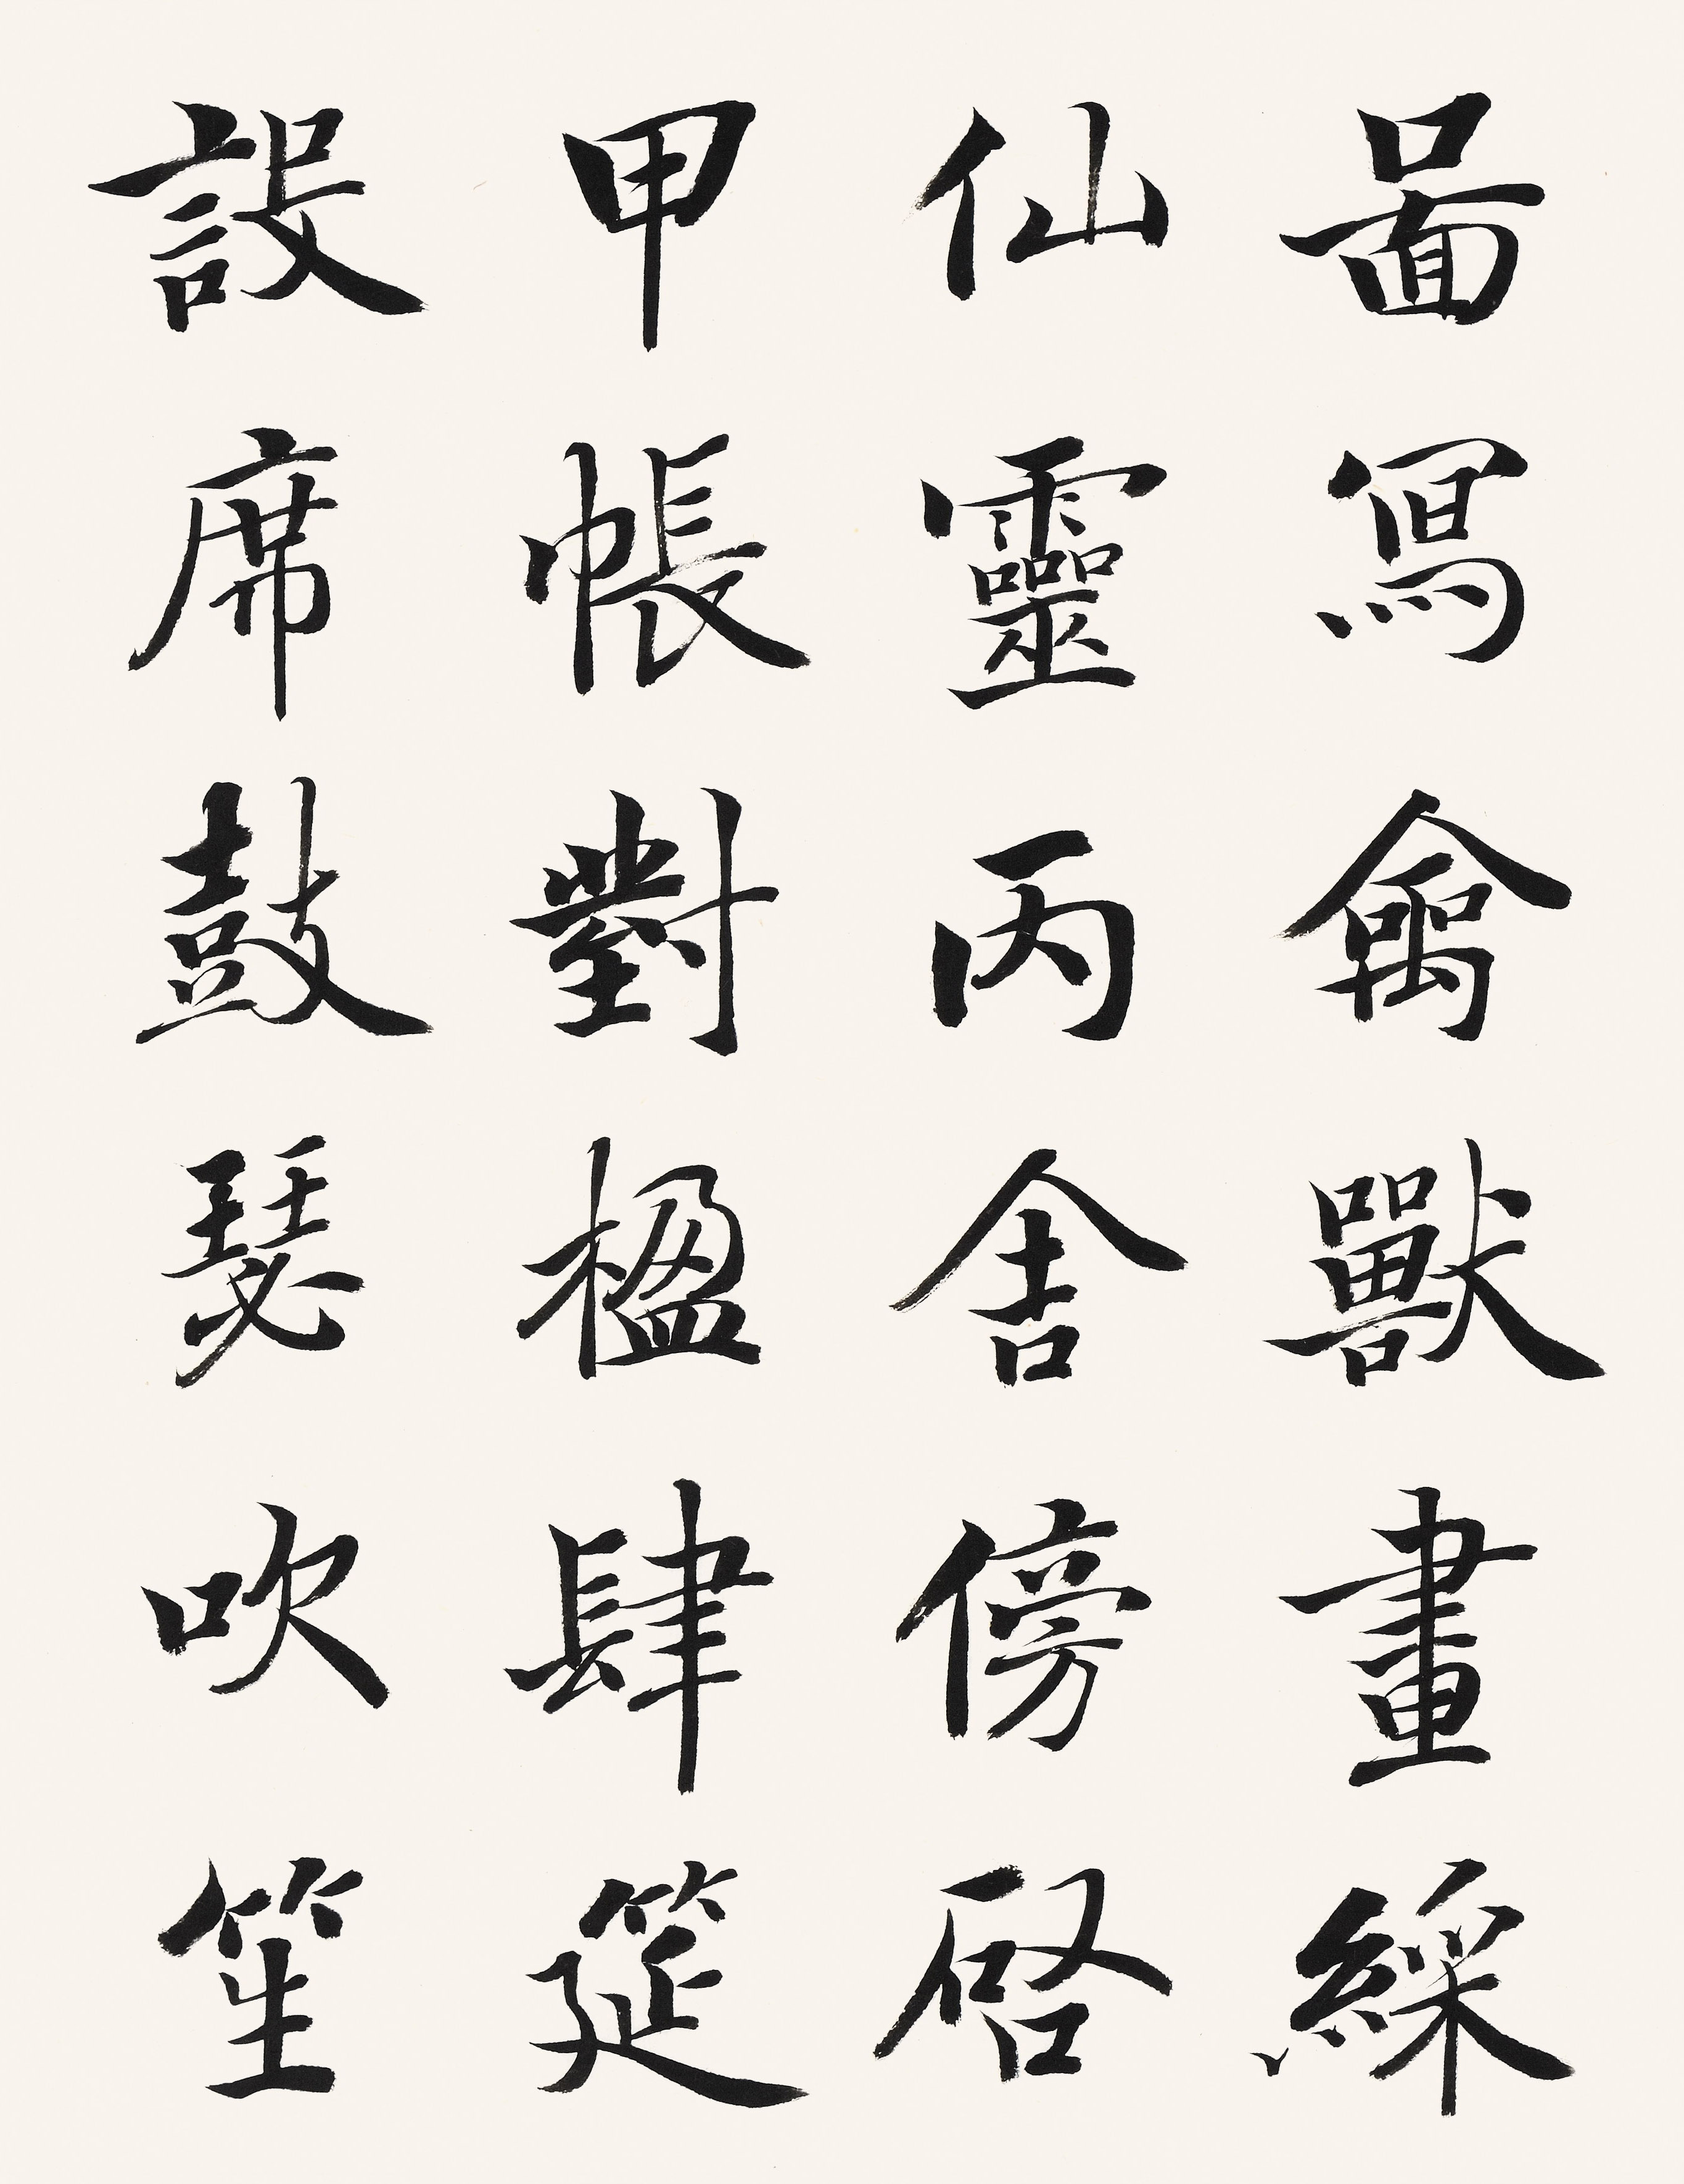 圖寫禽獸畫綵
仙靈丙舍傍啓
甲帳對楹肆筵
設席鼓瑟吹笙